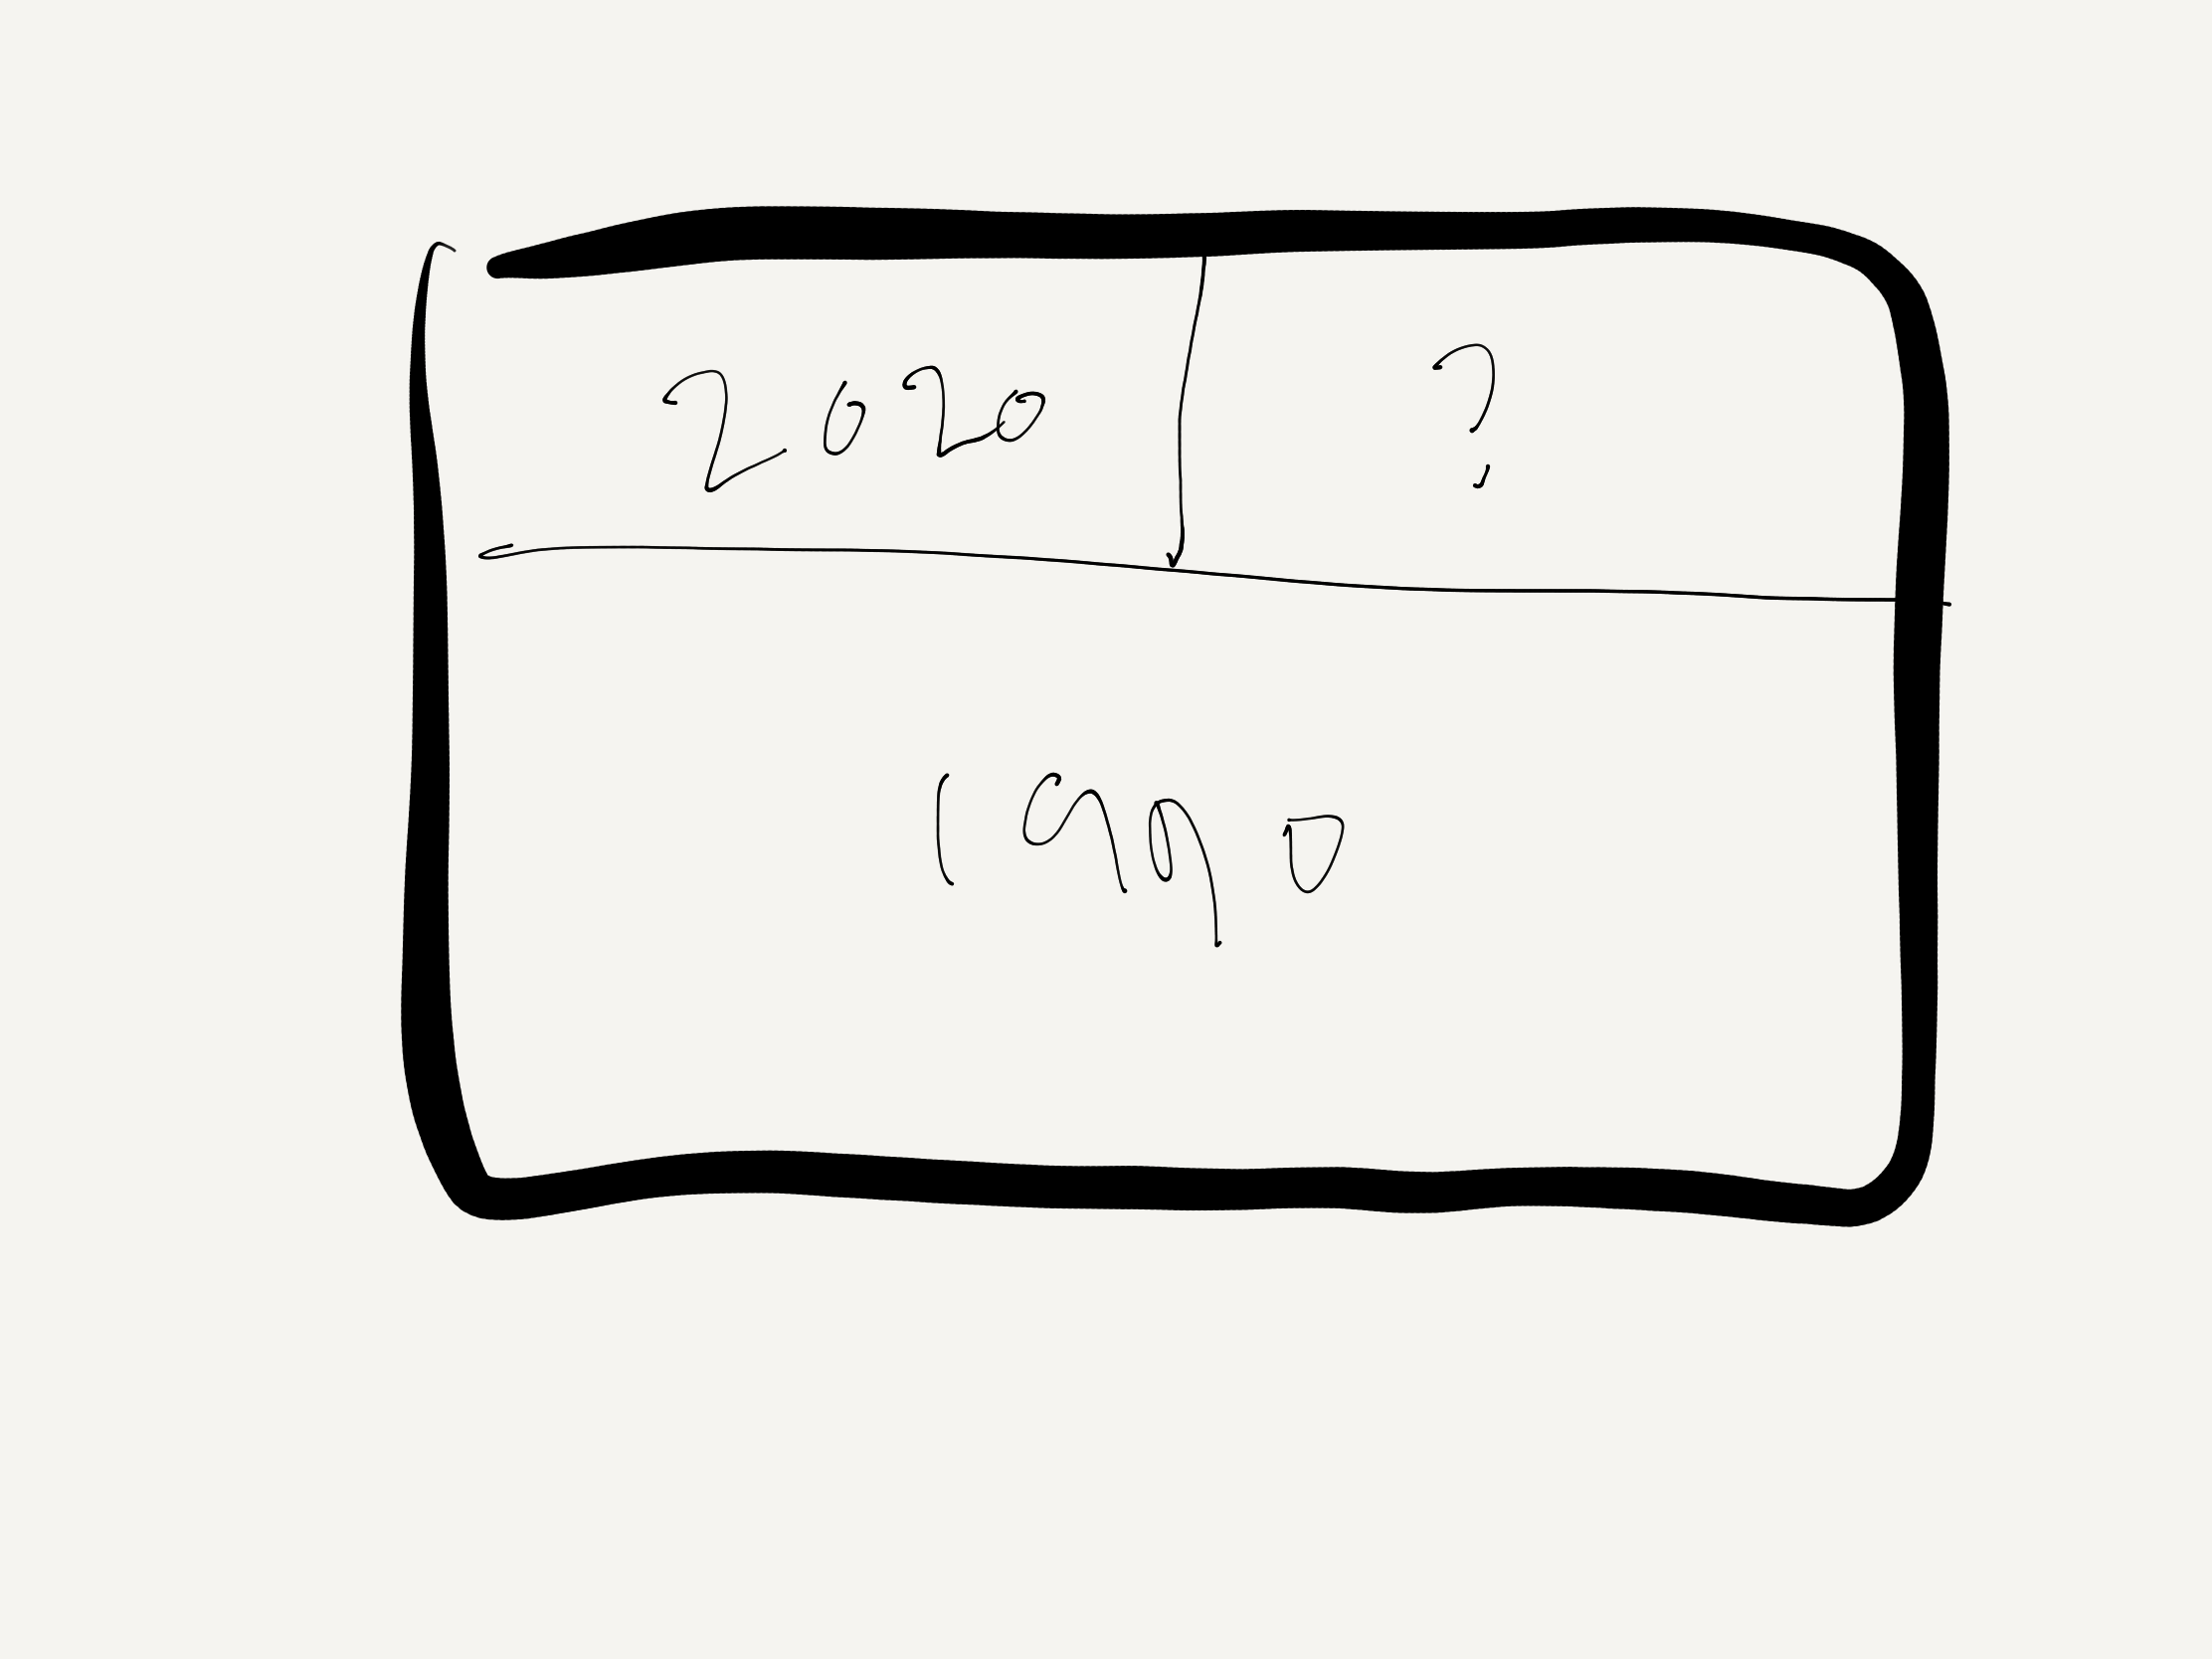 2020 ?
1990